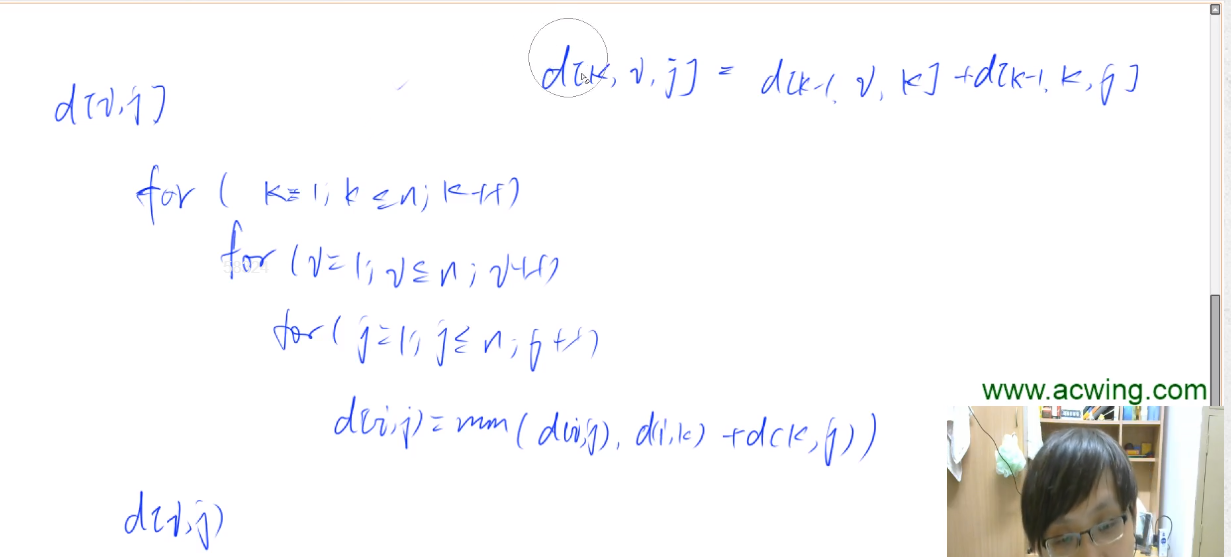 d[k, i, j] = d[k-1, i, k] + d[k-1, k, j]
d[i, j]
for ( k=1; k≤n; k++)
for (i=1; i≤n; i++)
for ( j=1; j≤n; j++)
d(i,j) = min( d(i,j), d(i,k) + d(k,j))
www.acwing.com
d[i,j)